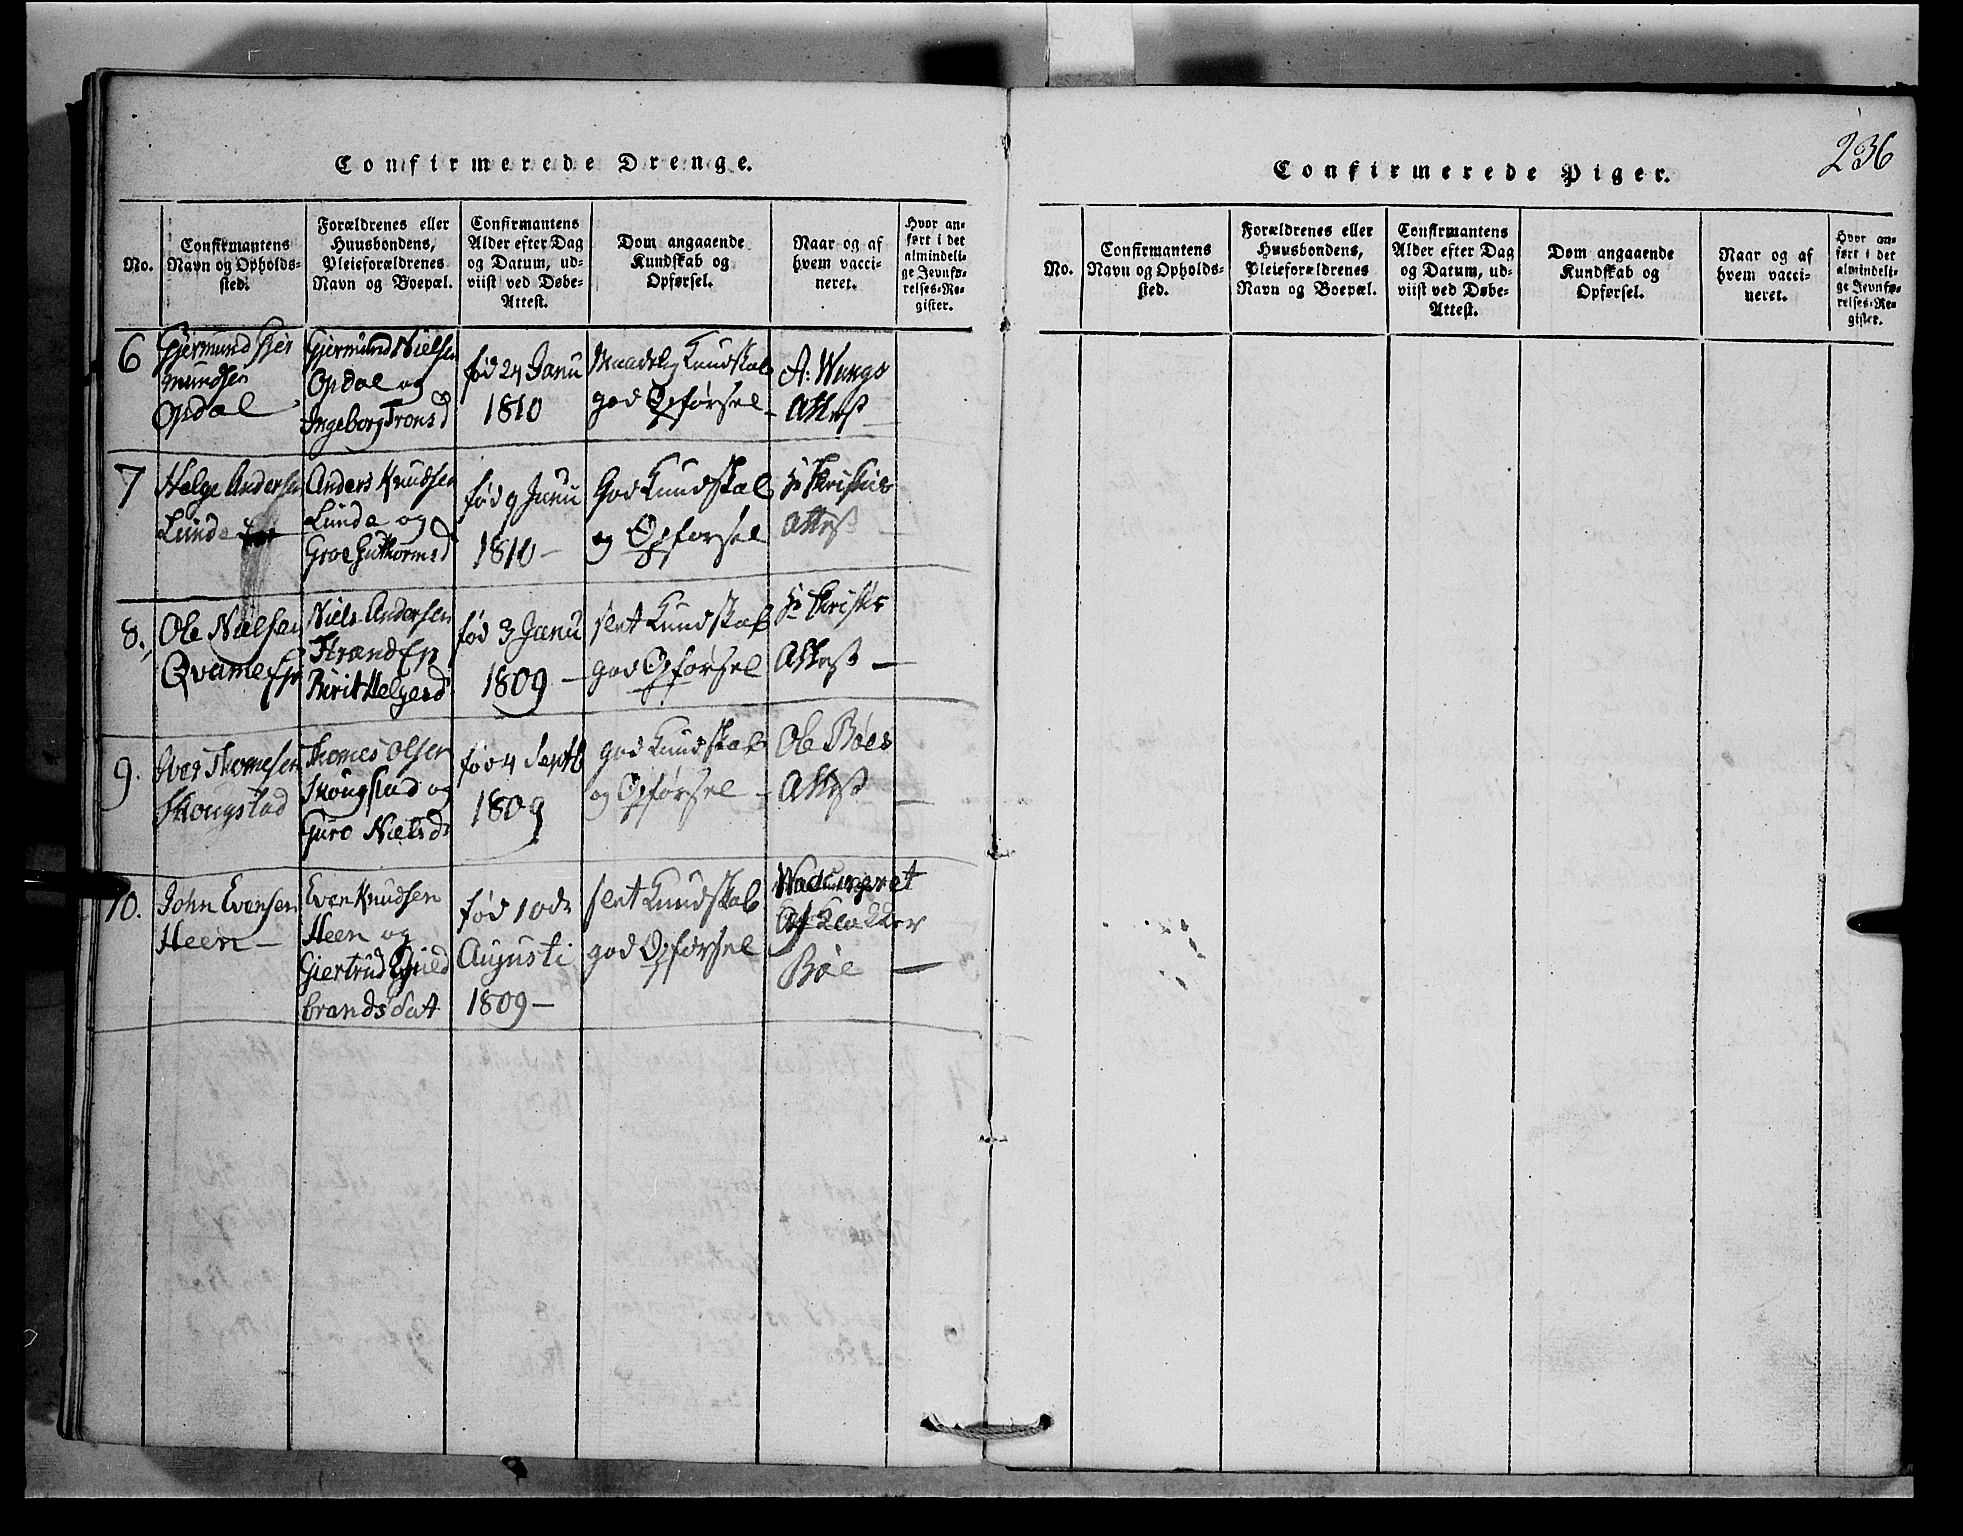 Confirmerede Drenge.
No.
Confirmantens
Navn og Opholds-
sted.
Forældrenes eller
Huusbondens,
Pleieforældrenes
Navn og Boepæl.
Confirmantens
Alder efter Dag
og Datum, ud-
viist ved Døbe-
Attest.
Dom angaaende
Kundskab og
Opførsel.
Naar og af
hvem vacci-
neret.
Hvor an-
ført i det
almindeli-
ge Jevnfø-
relses-Re-
gister.
6
Gjermund Gjer
mundsen
Opdal
Gjermund Nielsen
Opdal og
Ingeborg Tronsd
fød 24 Janu
1810
Maadelig Kundskab
god Opførsel
A: Wangs
Attest
7
Helge Andersen
Lunde
Anders Knudsen
Lunde og
Groe Guthormsd
fød 9 Janu
1810 -
God Kundskab
og Opførsel
Hr Christies
Attest -
8.
Ole Nielsen
Qvame
Niels Andersen
Birit Helgesd
fød 3 Janu
1809 -
slet Kundskab
god Opførsel
Hr Christies
Attest -
9.
Iver Thomesen
Skougstad
Thomes Olsen
Skougstad og
Guro Nielsd
fød 4 Septb
1809
god Kundskab
og Opførsel -
Ole Bøes
Attest -
10.
John Evensen
Heen -
Even Knudsen
Heen og
Giertrud Guld
brandsdat
fød 10de
Augusti
1809 -
slet Kundskab
god Opførsel
Vaccineret
af Klokker
Bøe -
236
Confirmerede Piger.
No.
Confirmantens
Navn og Opholds-
sted.
Forældrenes eller
Huusbondens,
Pleieforældrenes
Navn og Boepæl.
Confirmantens
Alder efter Dag
og Datum, ud-
viist ved Døbe-
Attest.
Dom angaaende
Kundskab og
Opførsel.
Naar og af
hvem vacci-
neret.
Hvor an-
ført i det
almindeli-
ge Jevnfø-
relses-Re-
gister.